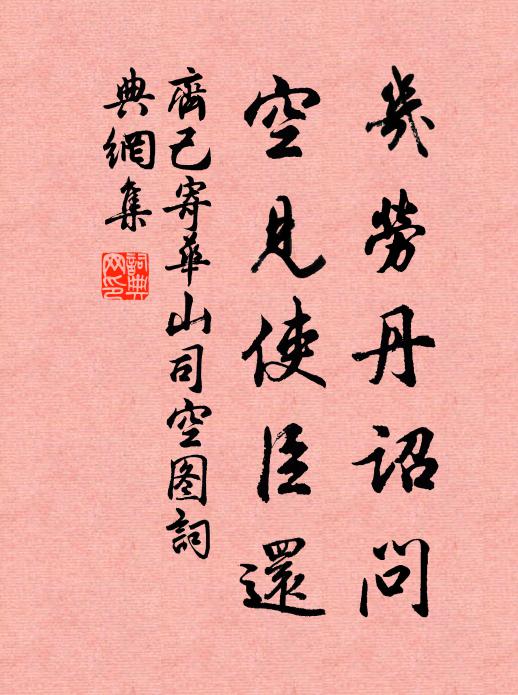 幾勞丹詔問
空見使臣還
齊己寄華山司空图詞
典網集
詞典
网印